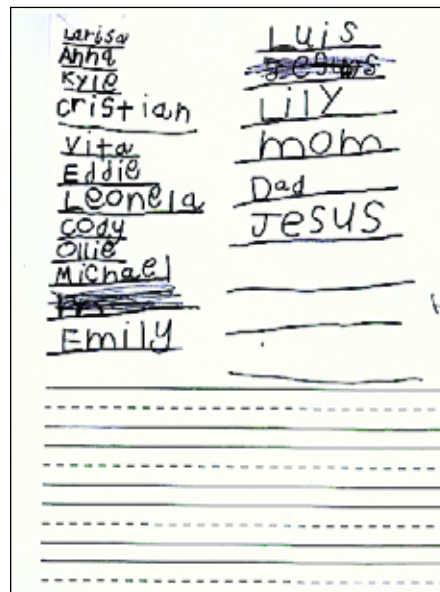 Larisa
Anna
Kyle
Cristian
Vita
Eddie
Leonela
Cody
Ollie
Michael
Emily
Luis
Jesus
Lily
mom
Dad
Jesus